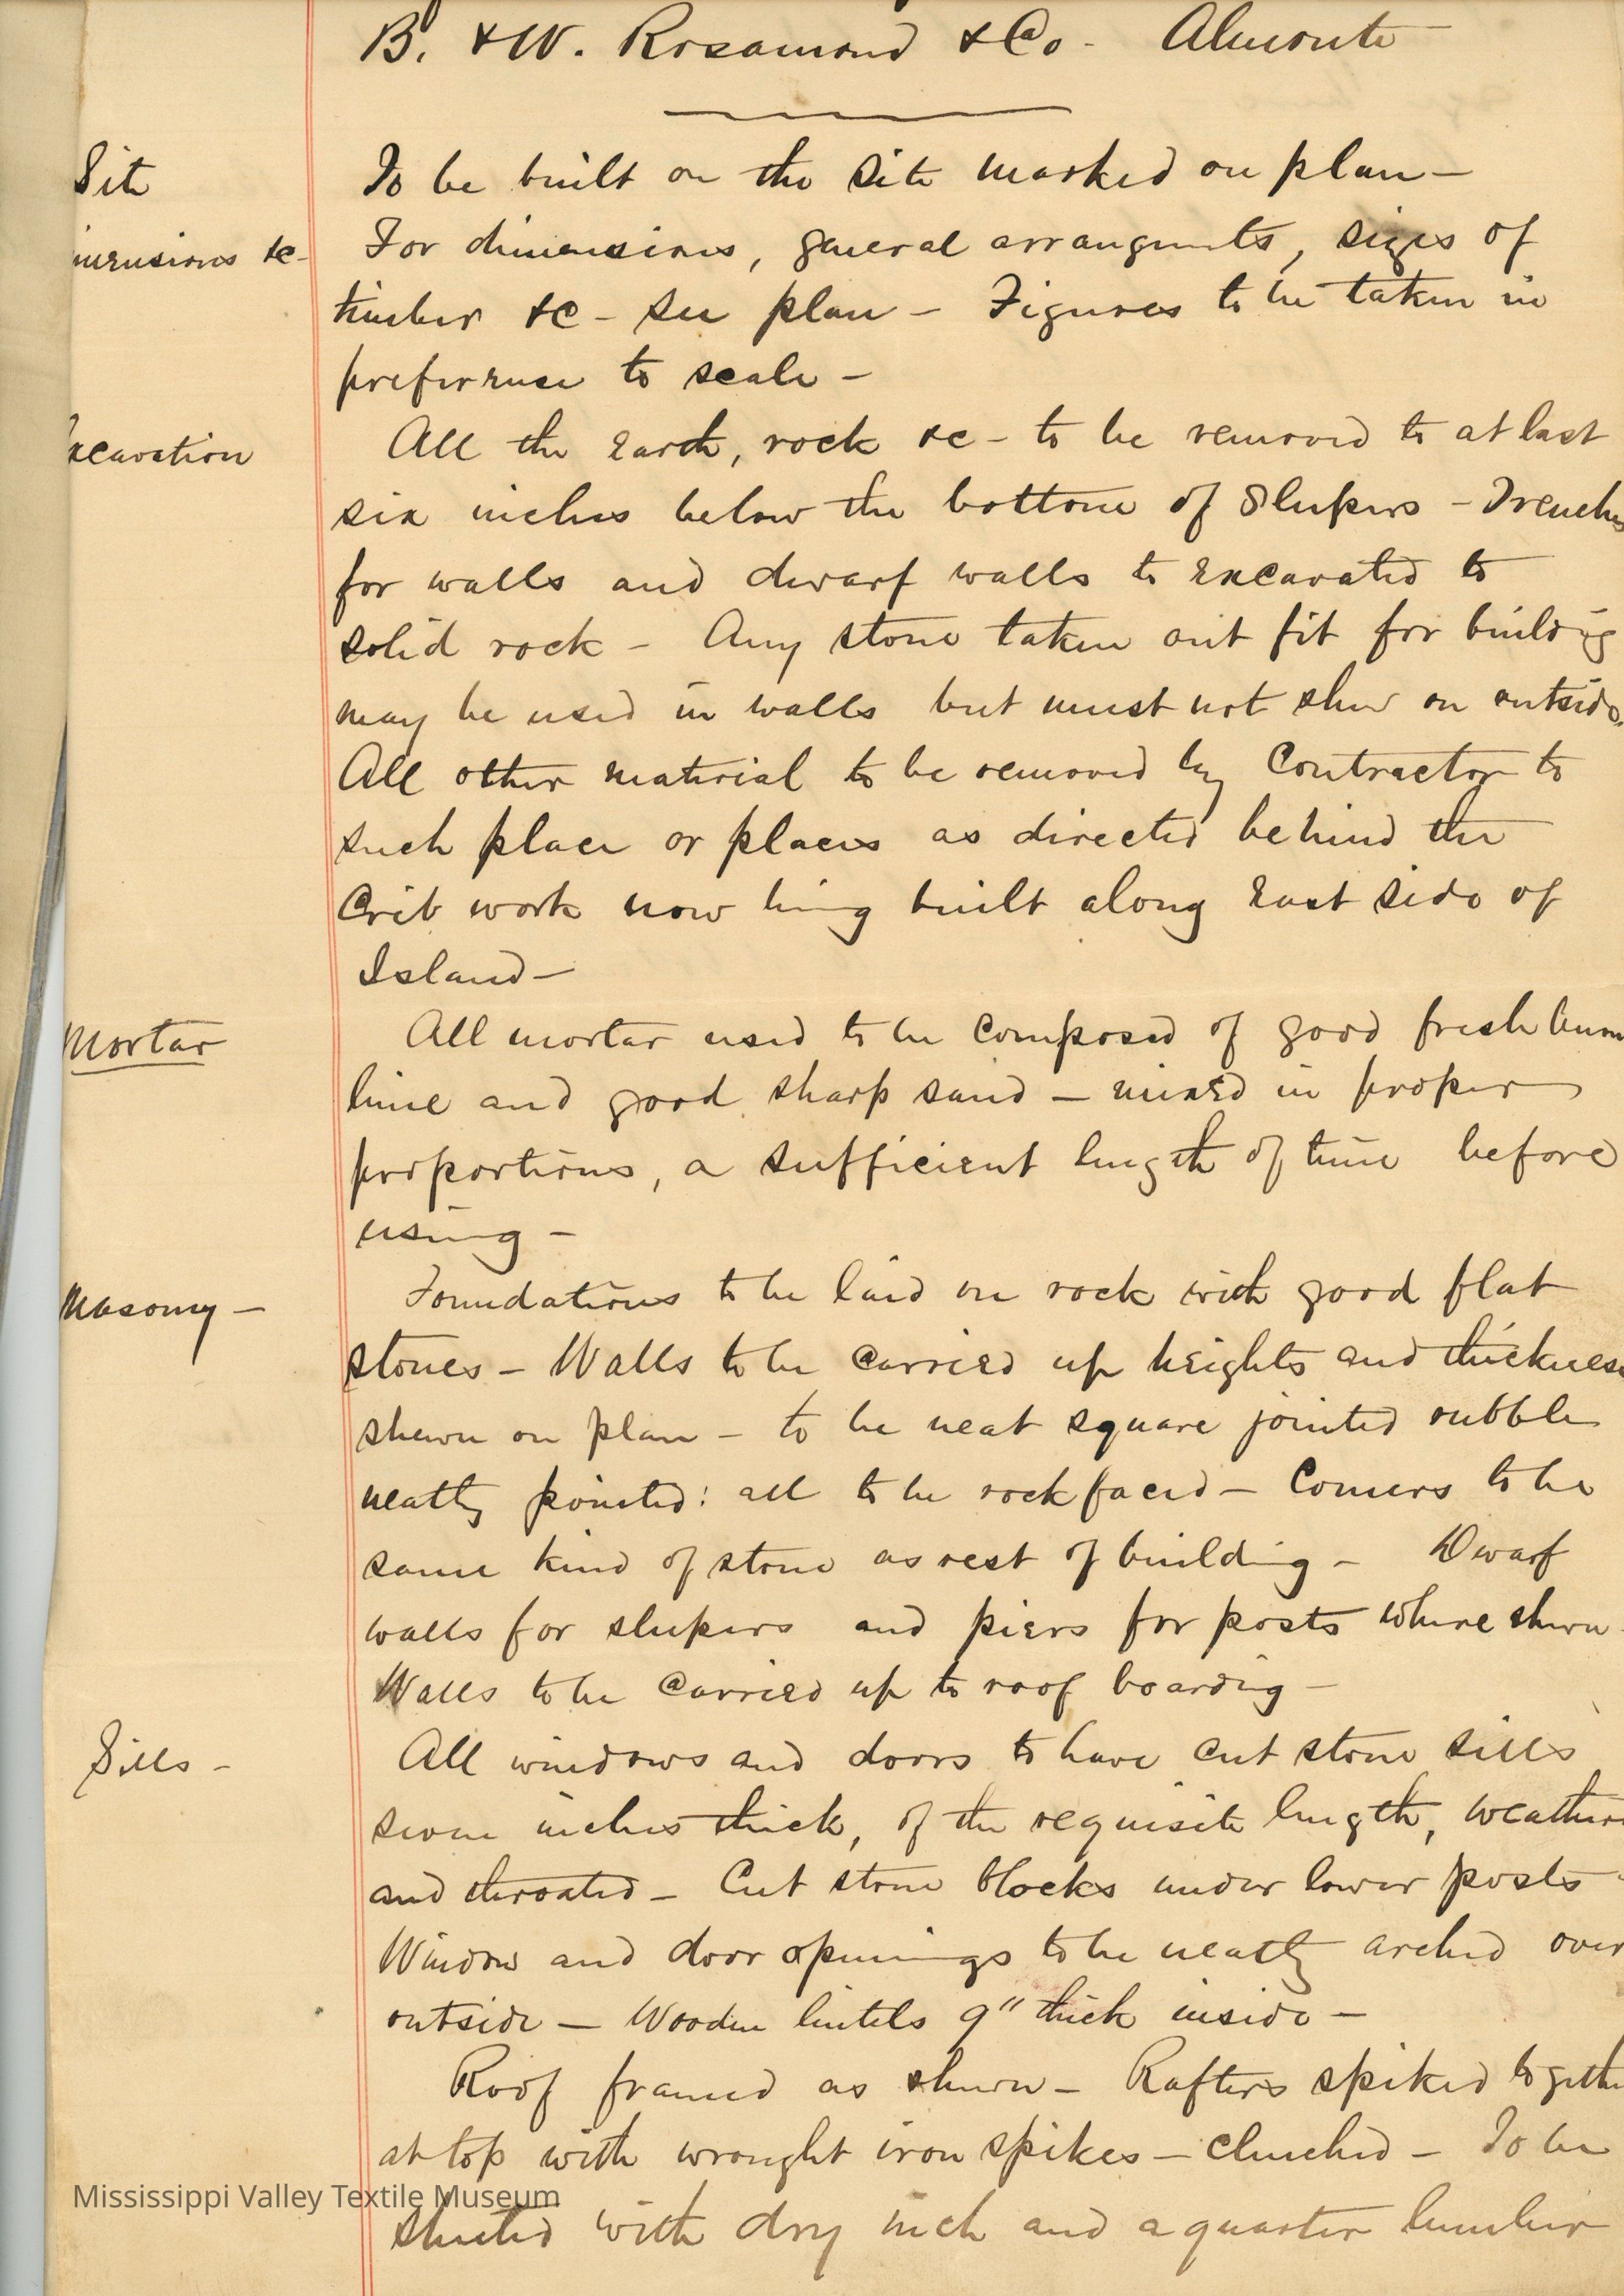 B. & W. Rosamond & Co - Almonte
Site
To be built on the site marked on plan -
mensions &c -
For dimensions, general arrangmnts, sizes of
timber &c - see plan - Figures to be taken in
preference to scale -
xcavation
All the earth, rock &c - to be removed to at last
six inches below the bottom of Sleepers - Trenches
for walls and dwarf walls to excavated to
solid rock - Any stone taken out fit for building
may be used in walls but must not shew on outside.
All other material to be removed by Contractor to
such place or places as directed behind the
Crib work now being built along East side of
Island -
Mortar
All mortar used to be composed of good fresh burn
lime and good sharp sand - mixed in proper
proportions, a sufficient length of time before
using -
Masonry -
Foundations to be laid on rock with good flat
stones - Walls to be carried up heights and thickness
shewn on plan - to be neat square jointed rubble
neatly pointed: all to be rock faced - Corners to be
same kind of stone as rest of building - Dwarf
walls for sleepers and piers for posts where shewn -
Walls to be carried up to roof boarding -
Sills -
All windows and doors to have cut stone sills
seven inches thick, of the requisite length, weathere
and throated - Cut stone blocks under lower posts -
Window and door openings to be neatly arched over
outside - Wooden lintels 9" thick inside -
Roof framed as shewn - Rafters spiked togethe
at top with wrought iron spikes - clenched - To be
sheeted with dry inch and a quarter lumber
Mississippi Valley Textile Museum